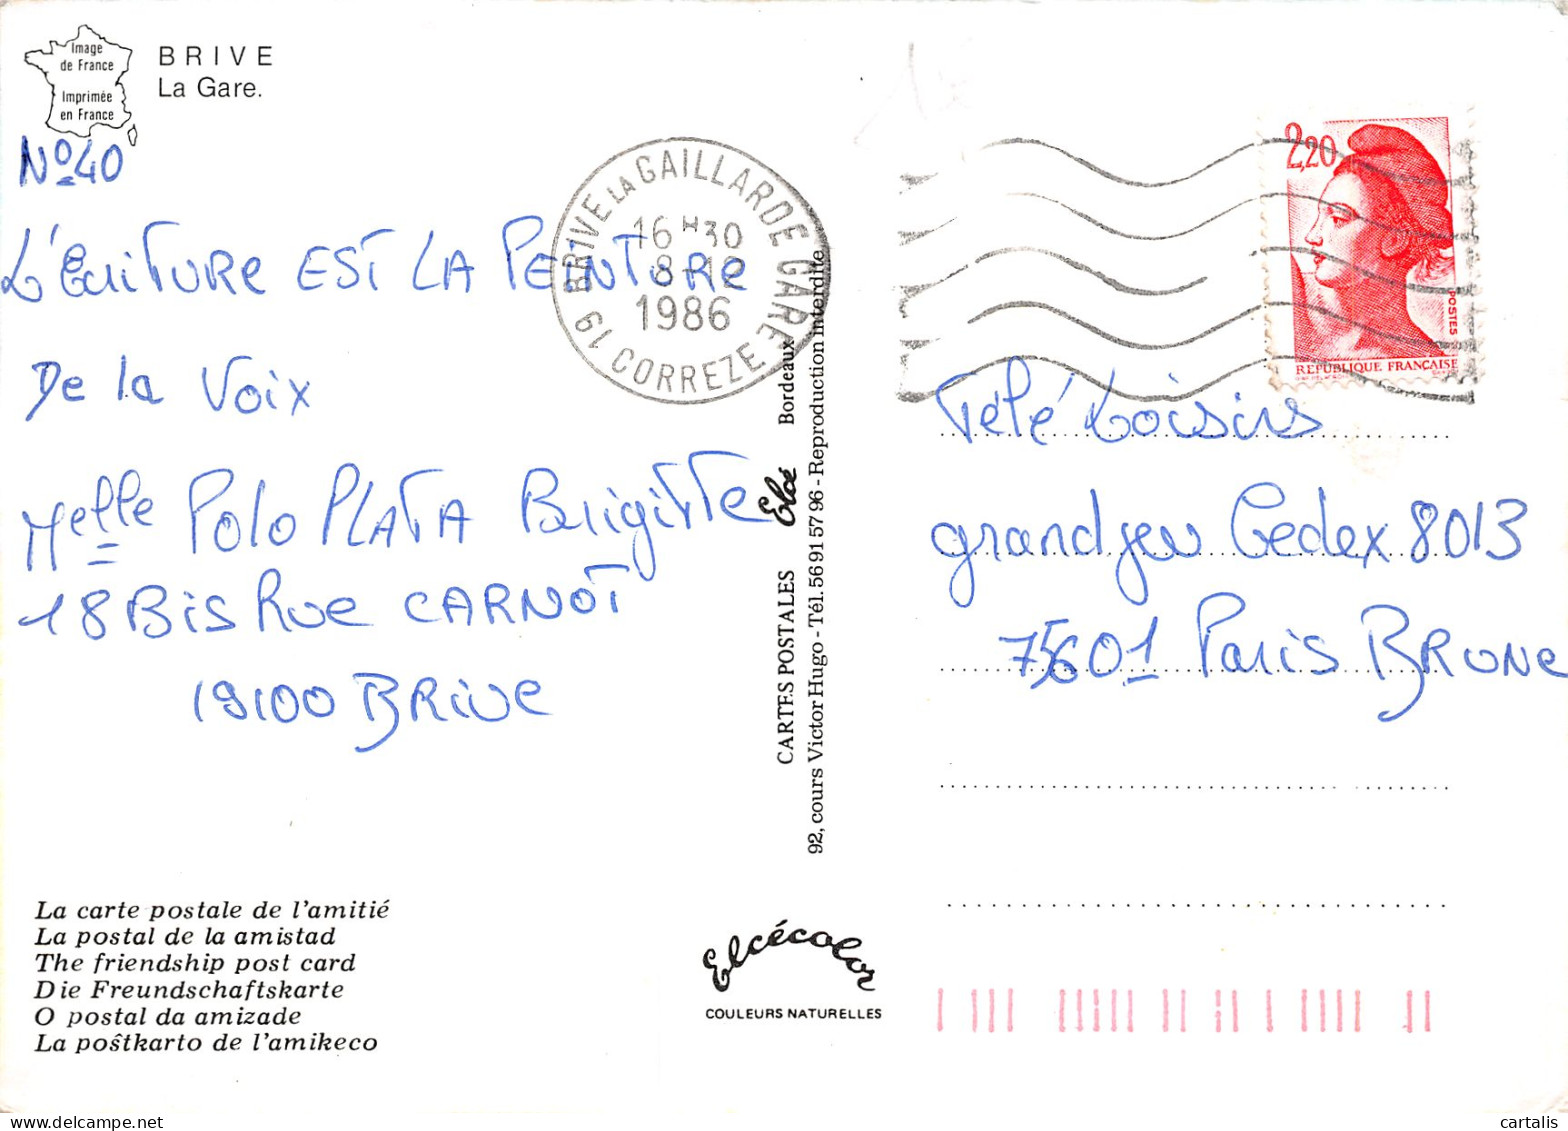 Image
de France
Imprimée
en France
BRIVE
La Gare.
N° 40
L'ÉCRITURE EST LA PEINTURE
De la Voix
Melle POLO PLATA Brigitte
18 Bis Rue CARNOT
19100 BRIVE
BRIVE LA GAILLARDE GARE
16 H 30
8-12
1986
19 CORREZE
2,20
POSTES
REPUBLIQUE FRANÇAISE
Télé Loisirs
grand jeu Cedex 8013
75601 Paris BRUNE
CARTES POSTALES Elcé Bordeaux
92, cours Victor Hugo - Tél. 56 91 57 96 - Reproduction interdite
La carte postale de l'amitié
La postal de la amistad
The friendship post card
Die Freundschaftskarte
O postal da amizade
La poŝtkarto de l'amikeco
Elcécolor
COULEURS NATURELLES
cartalis